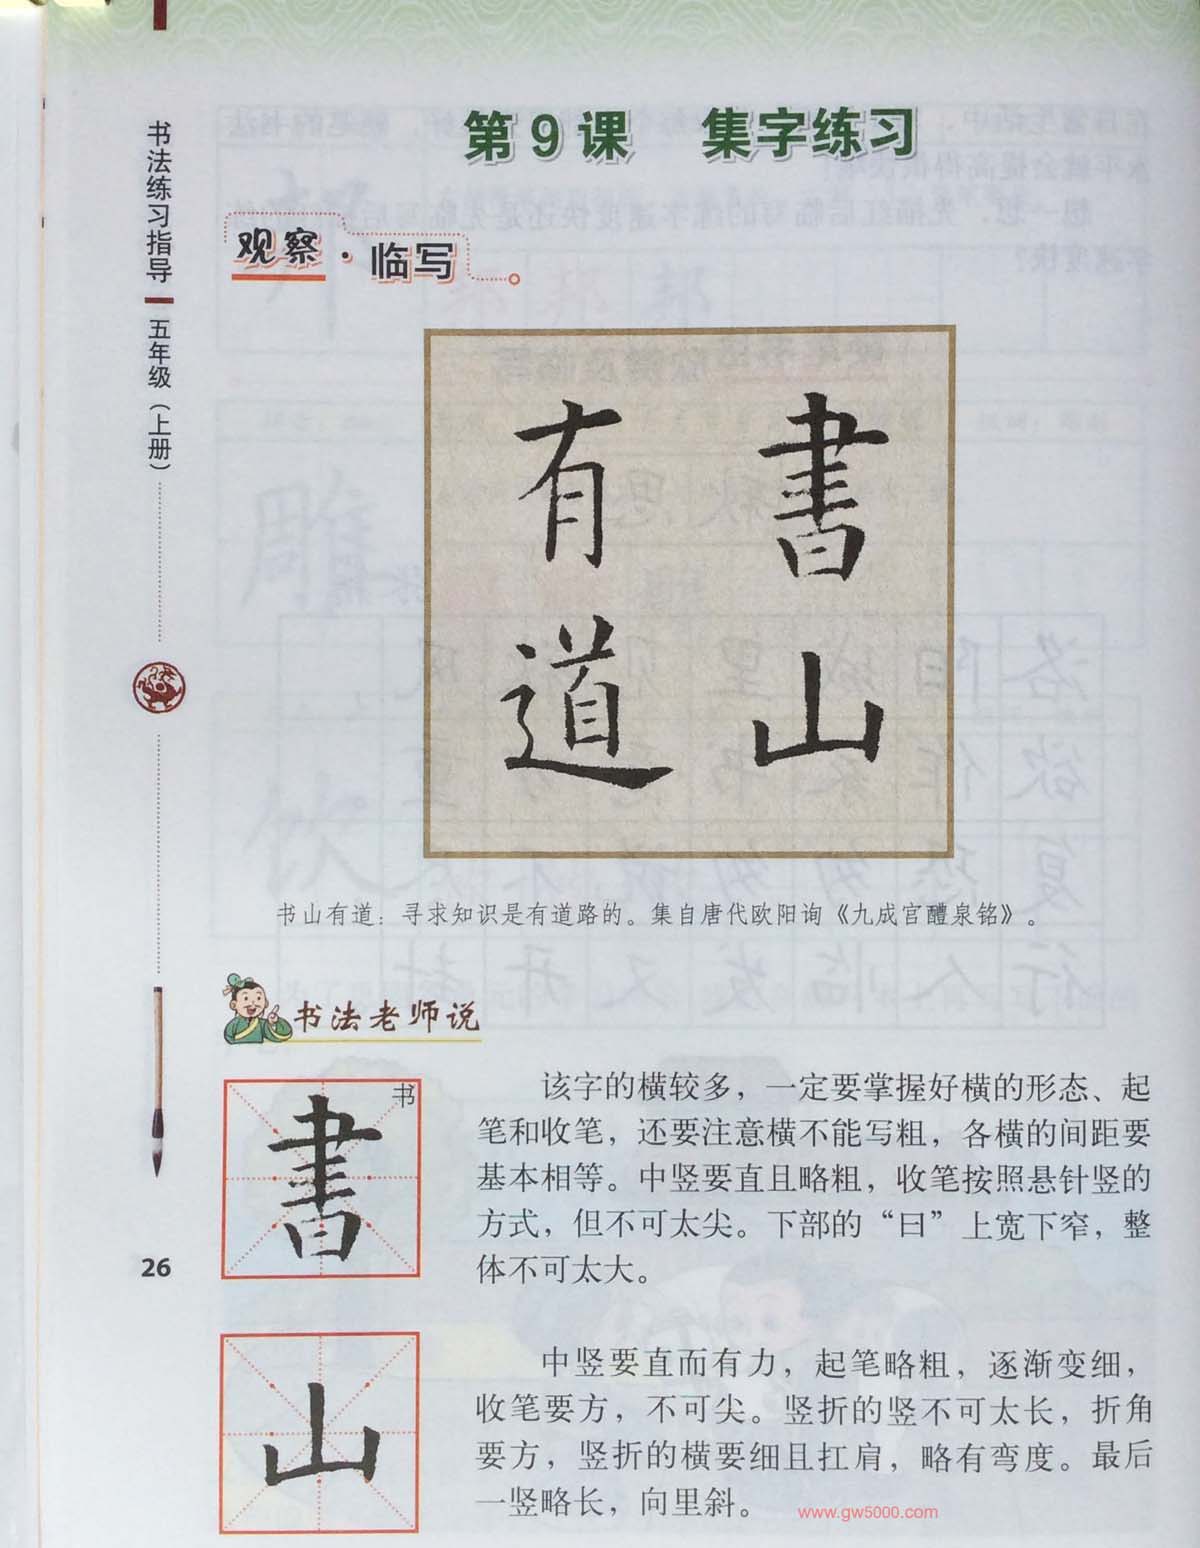 第9课 集字练习
书法练习指导
五年级（上册）
观察·临写
書山
有道
书山有道：寻求知识是有道路的。集自唐代欧阳询《九成宫醴泉铭》。
书法老师说
書
书
该字的横较多，一定要掌握好横的形态、起
笔和收笔，还要注意横不能写粗，各横的间距要
基本相等。中竖要直且略粗，收笔按照悬针竖的
方式，但不可太尖。下部的“曰”上宽下窄，整
体不可太大。
26
山
中竖要直而有力，起笔略粗，逐渐变细，
收笔要方，不可尖。竖折的竖不可太长，折角
要方，竖折的横要细且扛肩，略有弯度。最后
一竖略长，向里斜。
www.gw5000.com